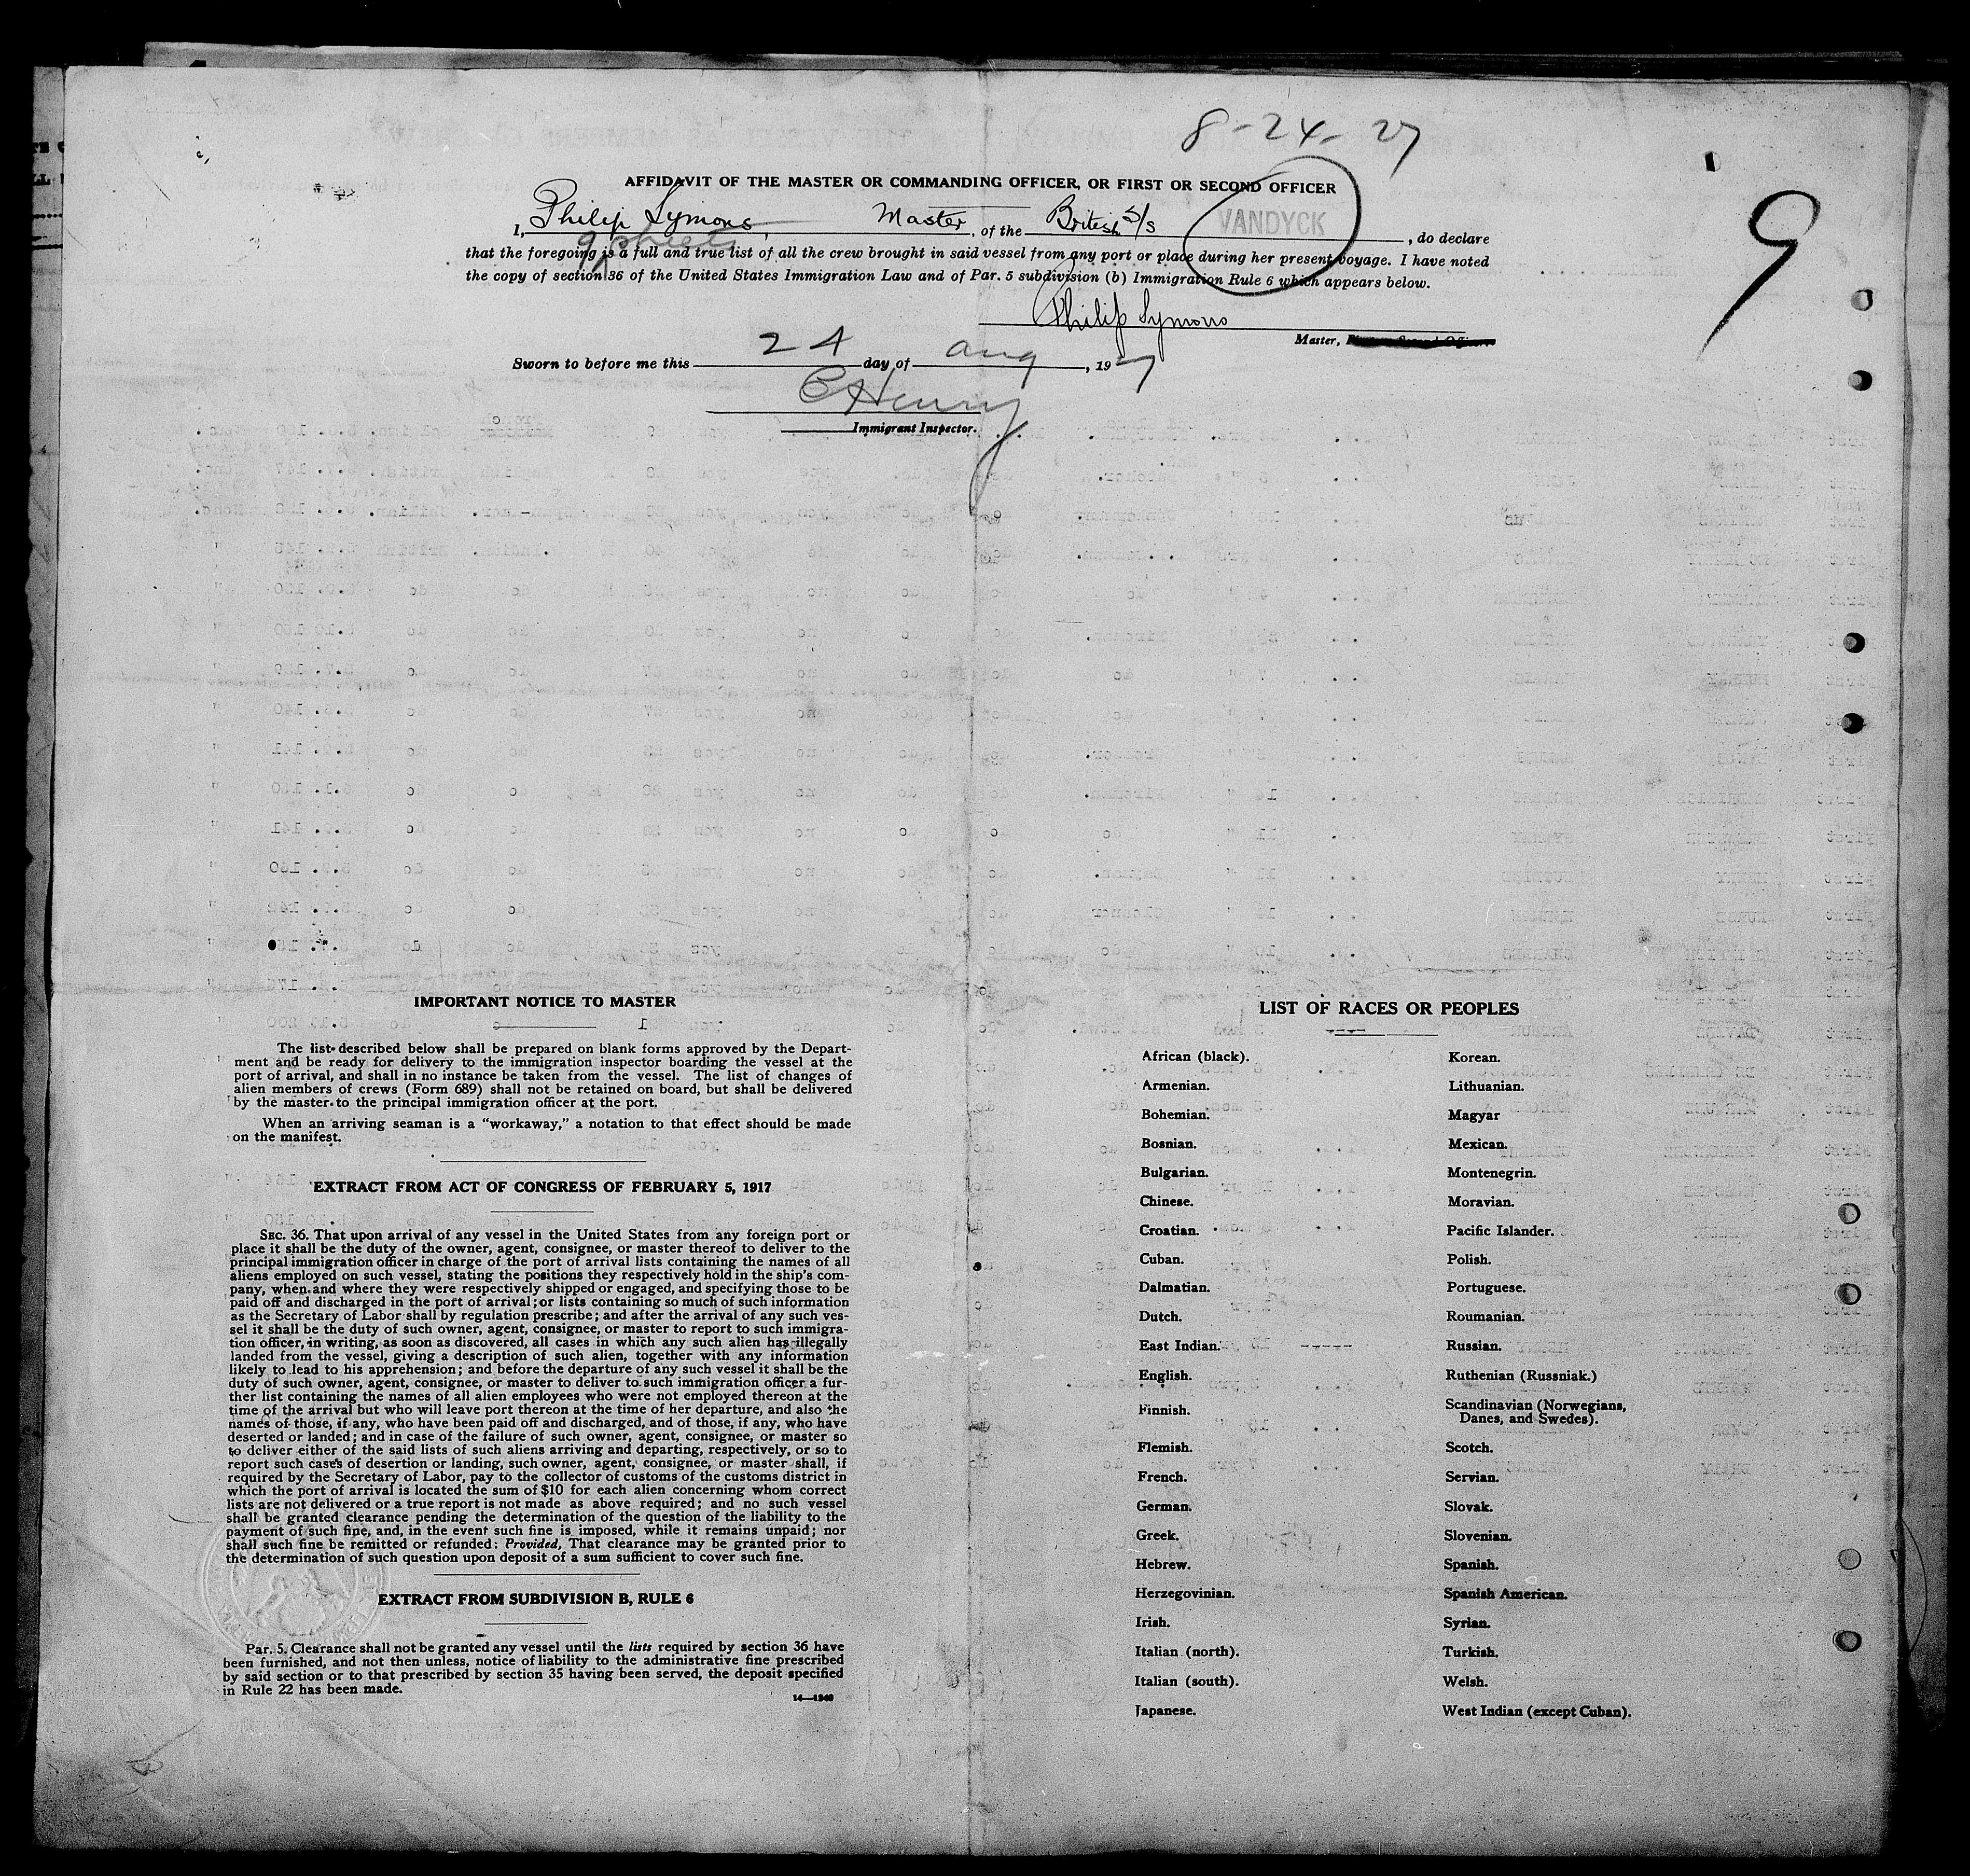 8-24-27
9
AFFIDAVIT OF THE MASTER OR COMMANDING OFFICER, OR FIRST OR SECOND OFFICER
I, Philip Symons, Master, of the British S/s VANDYCK, do declare
9 sheets
that the foregoing is a full and true list of all the crew brought in said vessel from any port or place during her present voyage. I have noted
the copy of section 36 of the United States Immigration Law and of Par. 5 subdivision (b) Immigration Rule 6 which appears below.
Philip Symons
Master,
Sworn to before me this 24 day of Aug, 197
Henry
Immigrant Inspector.
IMPORTANT NOTICE TO MASTER
The list described below shall be prepared on blank forms approved by the Depart-
ment and be ready for delivery to the immigration inspector boarding the vessel at the
port of arrival, and shall in no instance be taken from the vessel. The list of changes of
alien members of crews (Form 689) shall not be retained on board, but shall be delivered
by the master to the principal immigration officer at the port.
When an arriving seaman is a "workaway," a notation to that effect should be made
on the manifest.
EXTRACT FROM ACT OF CONGRESS OF FEBRUARY 5, 1917
SEC. 36. That upon arrival of any vessel in the United States from any foreign port or
place it shall be the duty of the owner, agent, consignee, or master thereof to deliver to the
principal immigration officer in charge of the port of arrival lists containing the names of all
aliens employed on such vessel, stating the positions they respectively hold in the ship's com-
pany, when and where they were respectively shipped or engaged, and specifying those to be
paid off and discharged in the port of arrival; or lists containing so much of such information
as the Secretary of Labor shall by regulation prescribe; and after the arrival of any such ves-
sel it shall be the duty of such owner, agent, consignee, or master to report to such immigra-
tion officer, in writing, as soon as discovered, all cases in which any such alien has illegally
landed from the vessel, giving a description of such alien, together with any information
likely to lead to his apprehension; and before the departure of any such vessel it shall be the
duty of such owner, agent, consignee, or master to deliver to such immigration officer a fur-
ther list containing the names of all alien employees who were not employed thereon at the
time of the arrival but who will leave port thereon at the time of her departure, and also the
names of those, if any, who have been paid off and discharged, and of those, if any, who have
deserted or landed; and in case of the failure of such owner, agent, consignee, or master so
to deliver either of the said lists of such aliens arriving and departing, respectively, or so to
report such cases of desertion or landing, such owner, agent, consignee, or master shall, if
required by the Secretary of Labor, pay to the collector of customs of the customs district in
which the port of arrival is located the sum of $10 for each alien concerning whom correct
lists are not delivered or a true report is not made as above required; and no such vessel
shall be granted clearance pending the determination of the question of the liability to the
payment of such fine, and, in the event such fine is imposed, while it remains unpaid; nor
shall such fine be remitted or refunded: Provided, That clearance may be granted prior to
the determination of such question upon deposit of a sum sufficient to cover such fine.
EXTRACT FROM SUBDIVISION B, RULE 6
Par. 5. Clearance shall not be granted any vessel until the lists required by section 36 have
been furnished, and not then unless, notice of liability to the administrative fine prescribed
by said section or to that prescribed by section 35 having been served, the deposit specified
in Rule 22 has been made.
LIST OF RACES OR PEOPLES
African (black).
Armenian.
Bohemian.
Bosnian.
Bulgarian.
Chinese.
Croatian.
Cuban.
Dalmatian.
Dutch.
East Indian.
English.
Finnish.
Flemish.
French.
German.
Greek.
Hebrew.
Herzegovinian.
Irish.
Italian (north).
Italian (south).
Japanese.
Korean.
Lithuanian.
Magyar
Mexican.
Montenegrin.
Moravian.
Pacific Islander.
Polish.
Portuguese.
Roumanian.
Russian.
Ruthenian (Russniak.)
Scandinavian (Norwegians,
Danes, and Swedes).
Scotch.
Servian.
Slovak.
Slovenian.
Spanish.
Spanish American.
Syrian.
Turkish.
Welsh.
West Indian (except Cuban).